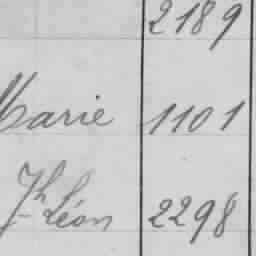 2189
Marie 1101
Jh Léon 2298